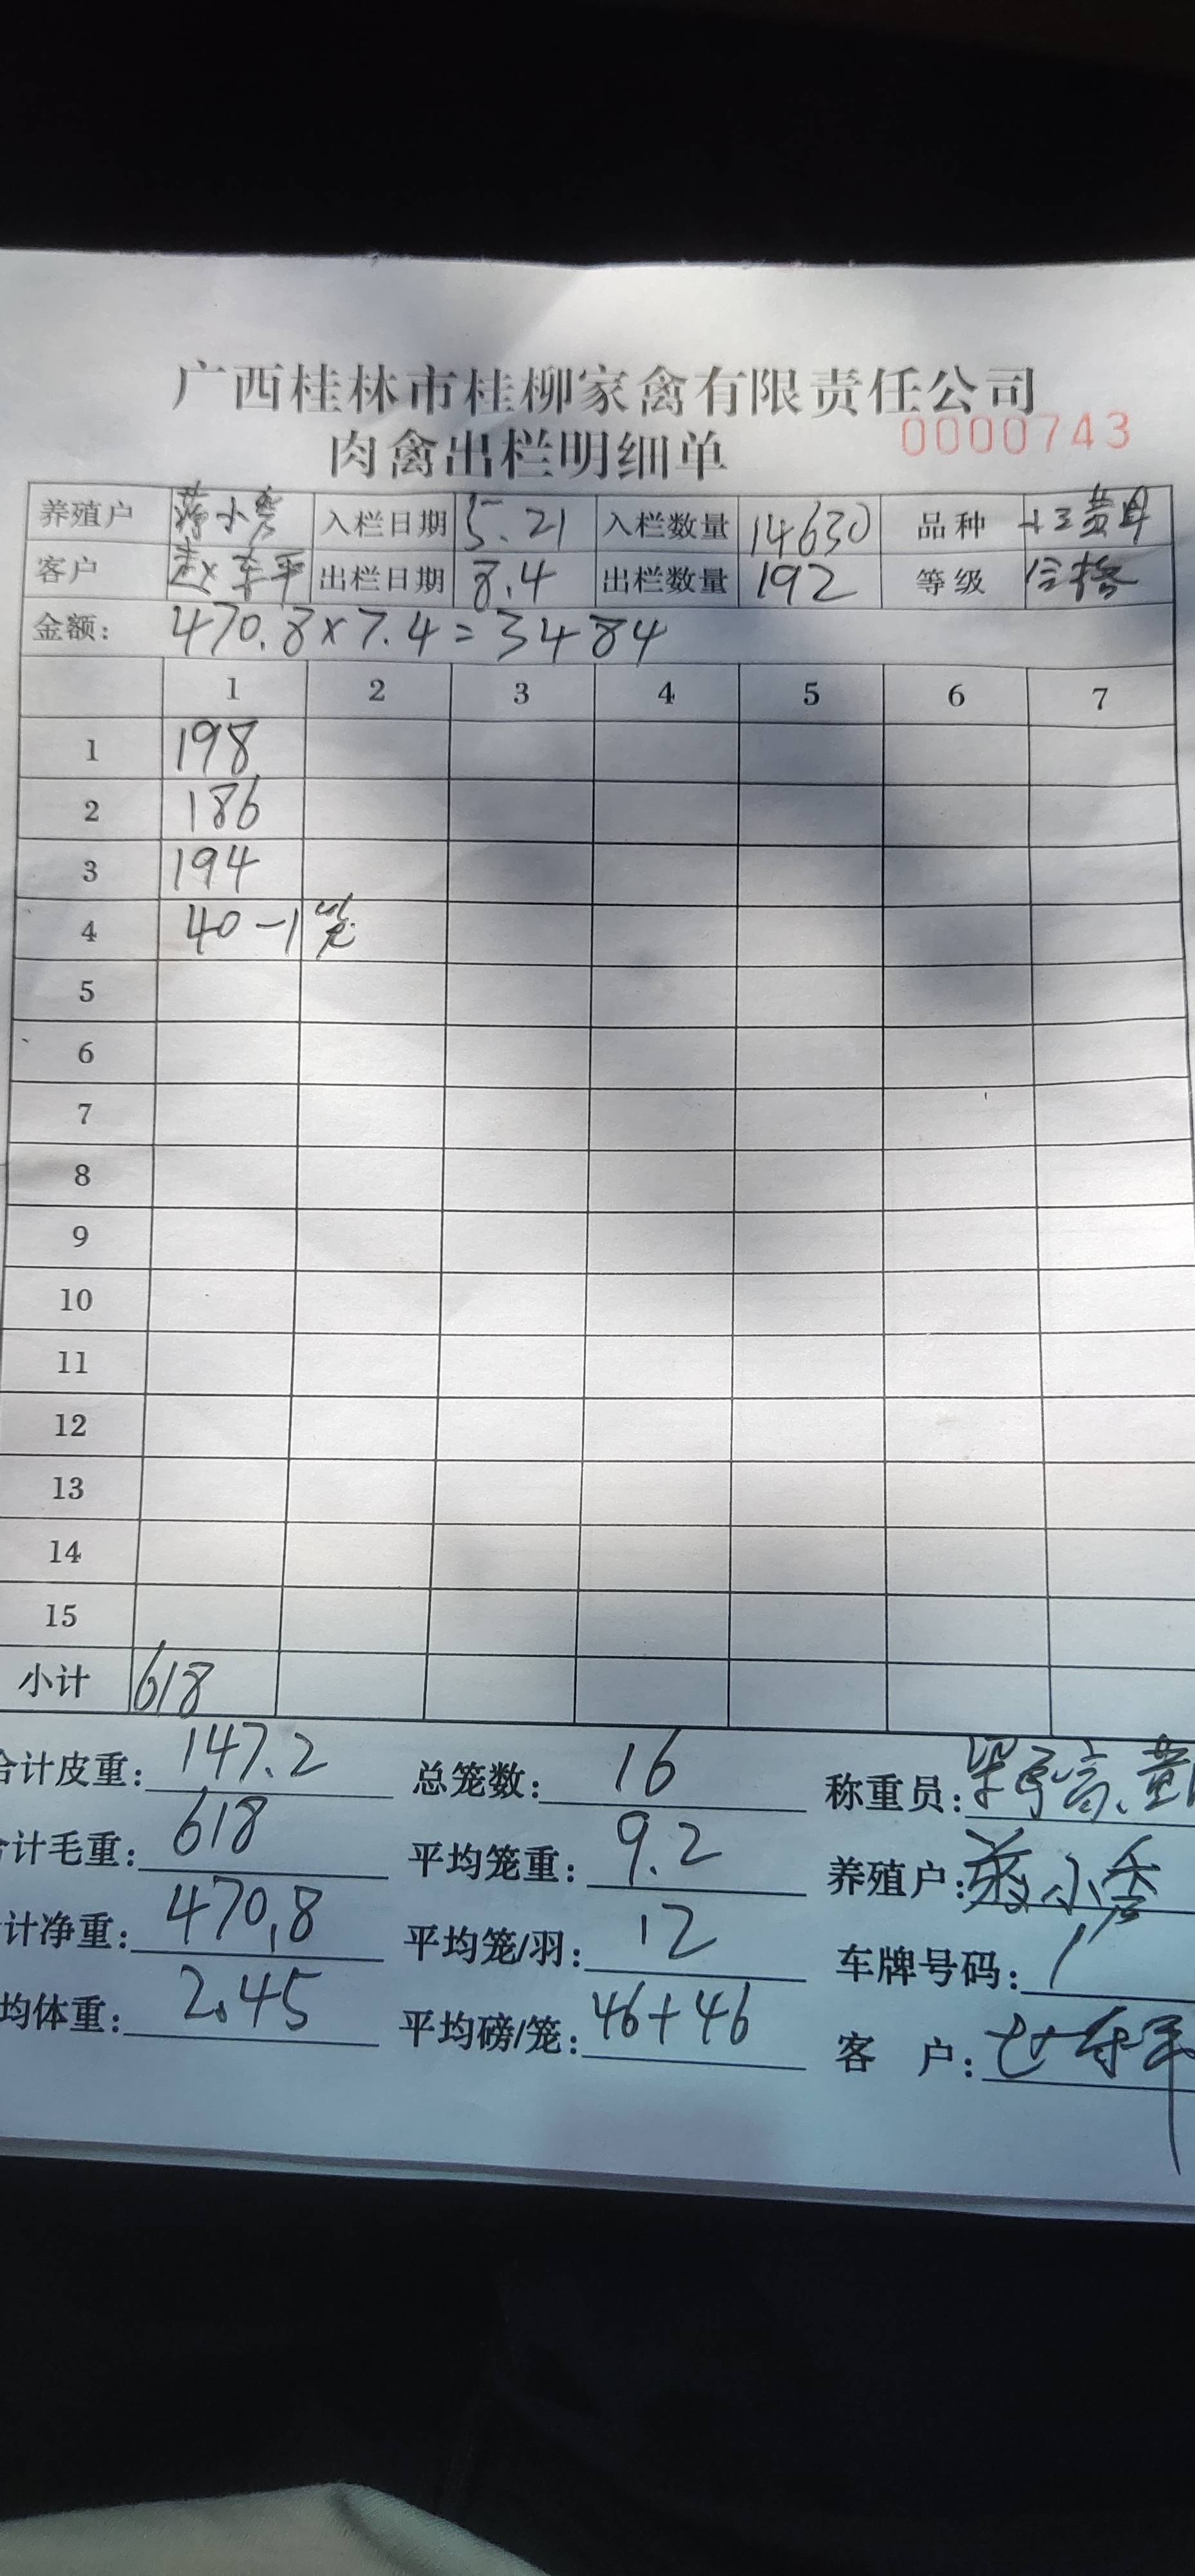 广西桂林市桂柳家禽有限责任公司
肉禽出栏明细单 0000743
养殖户 小 入栏日期 5.21 入栏数量 14630 品种 土三黄母
客户 赵 平 出栏日期 8.4 出栏数量 192 等级 合格
金额: 470.8×7.4=3484
1 2 3 4 5 6 7
1 198
2 186
3 194
4 40-1笼
5
6
7
8
9
10
11
12
13
14
15
小计 618
合计皮重: 147.2 总笼数: 16 称重员: 黄
合计毛重: 618 平均笼重: 9.2 养殖户: 小
计净重: 470.8 平均笼/羽: 12 车牌号码: 1
均体重: 2.45 平均磅/笼: 46+46 客 户: